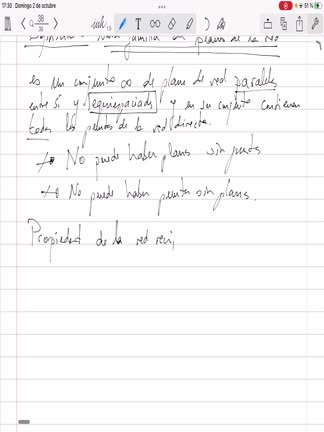 17:30 Domingo 2 de octubre
51 %
38
38
Definición una familia de planos de la red
es un conjunto ∞ de planos de red paralelos
entre sí y equiespaciados y en su conjunto contienen
todos los puntos de la red directa.
No puede haber planos sin puntos
No puede haber puntos sin planos.
Propiedad de la red reci